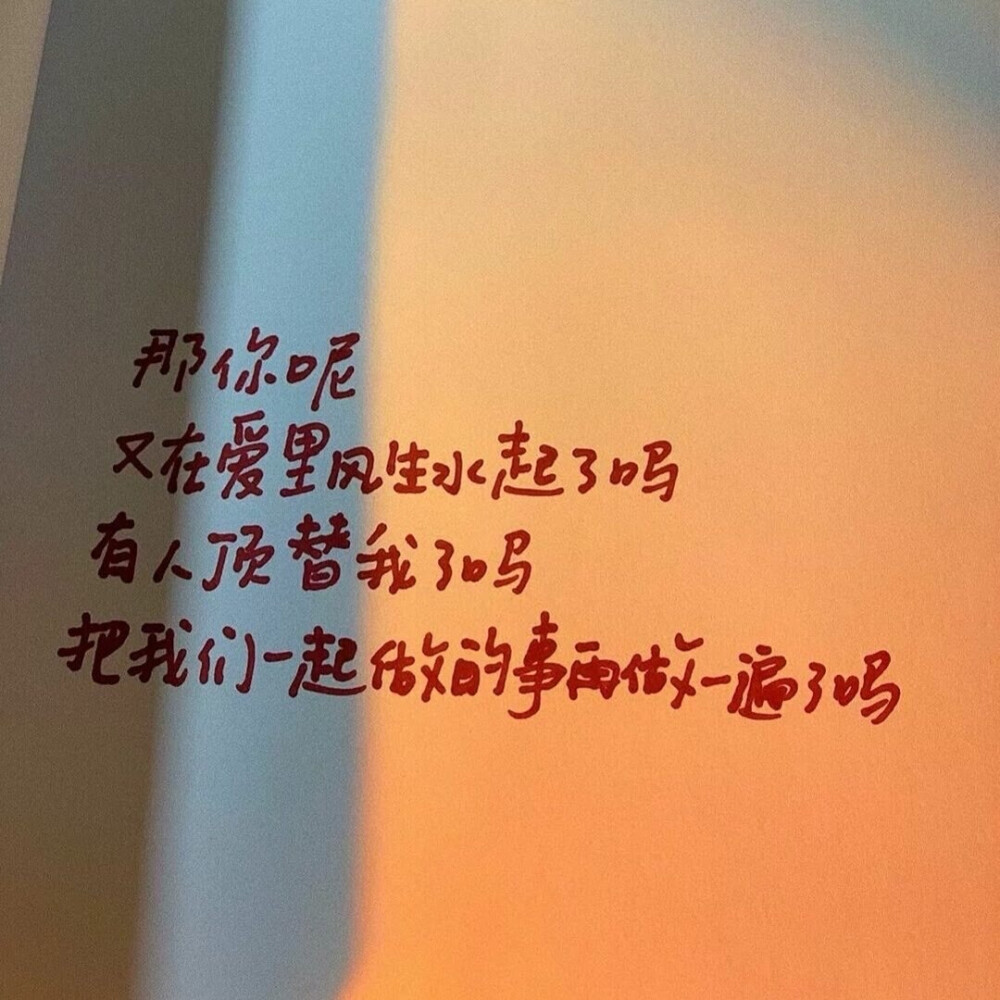 那你呢
又在爱里风生水起了吗
有人顶替我了吗
把我们一起做的事再做一遍了吗